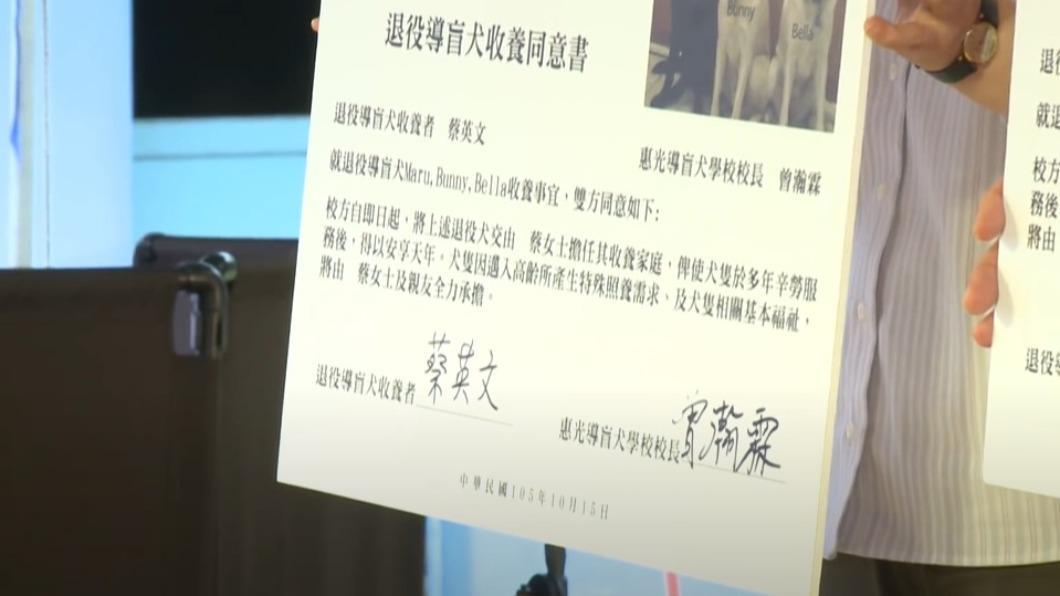 Bunny
Bella
退役導盲犬收養同意書
退役導盲犬收養者 蔡英文
惠光導盲犬學校校長 曾瀚霖
就退役導盲犬Maru,Bunny,Bella收養事宜，雙方同意如下：
校方自即日起，將上述退役犬交由 蔡女士擔任其收養家庭，俾使犬隻於多年辛勞服
務後，得以安享天年。犬隻因邁入高齡所產生特殊照養需求、及犬隻相關基本福祉，
將由 蔡女士及親友全力承擔。
退役導盲犬收養者 蔡英文
惠光導盲犬學校校長 曾瀚霖
中華民國105年10月15日
退役
就退
校方
務後
將由
退役導